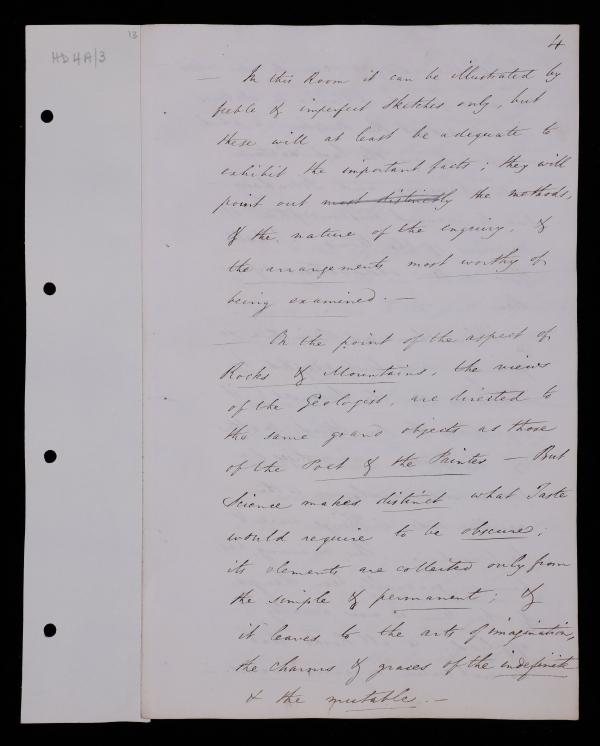 13
HD4A/3
4
— In this Room it can be illustrated by
feeble & imperfect sketches only, but
these will at least be adequate to
exhibit the important facts; they will
point out most distinctly the methods,
& the nature of the enquiry, &
the arrangements most worthy of
being examined. —
— On the point of the aspect of
Rocks & Mountains, the views
of the Geologist, are directed to
the same grand objects as those
of the Poet & the Painter — But
Science makes distinct what Taste
would require to be obscure;
its elements are collected only from
the simple & permanent; &
it leaves to the arts of imagination,
the charms & graces of the indefinite
& the mutable. —